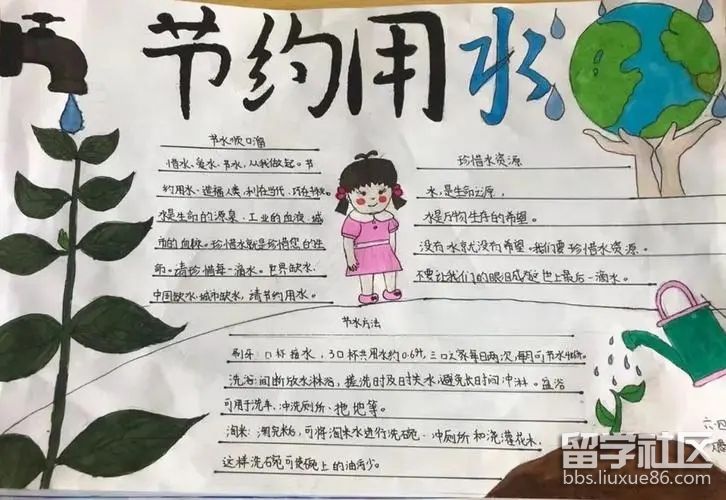 节约用水
节水顺口溜
惜水、爱水、节水，从我做起。节
约用水、造福人类，利在当代、功在千秋。
水是生命的源泉、工业的血液、城
市的血脉。珍惜水就是珍惜您的生
命。请珍惜每一滴水。世界缺水、
中国缺水、城市缺水，请节约用水。
珍惜水资源
水，是生命之源，
水是万物生存的希望。
没有水就没有希望。我们要珍惜水资源。
不要让我们的眼泪成为地球上最后一滴水。
节水方法
刷牙：口杯接水，3口杯共用水约0.6升，三口之家每日两次，每月可节水
洗浴：间断放水淋浴，搓洗时及时关水，避免长时间冲淋。盆浴
可用于洗车、冲洗厕所、拖地等。
淘米：淘完米后，可将淘米水进行洗碗、冲厕所和浇灌花木，
这样洗碗可使碗上的油污少。
留学社区
bbs.liuxue86.com